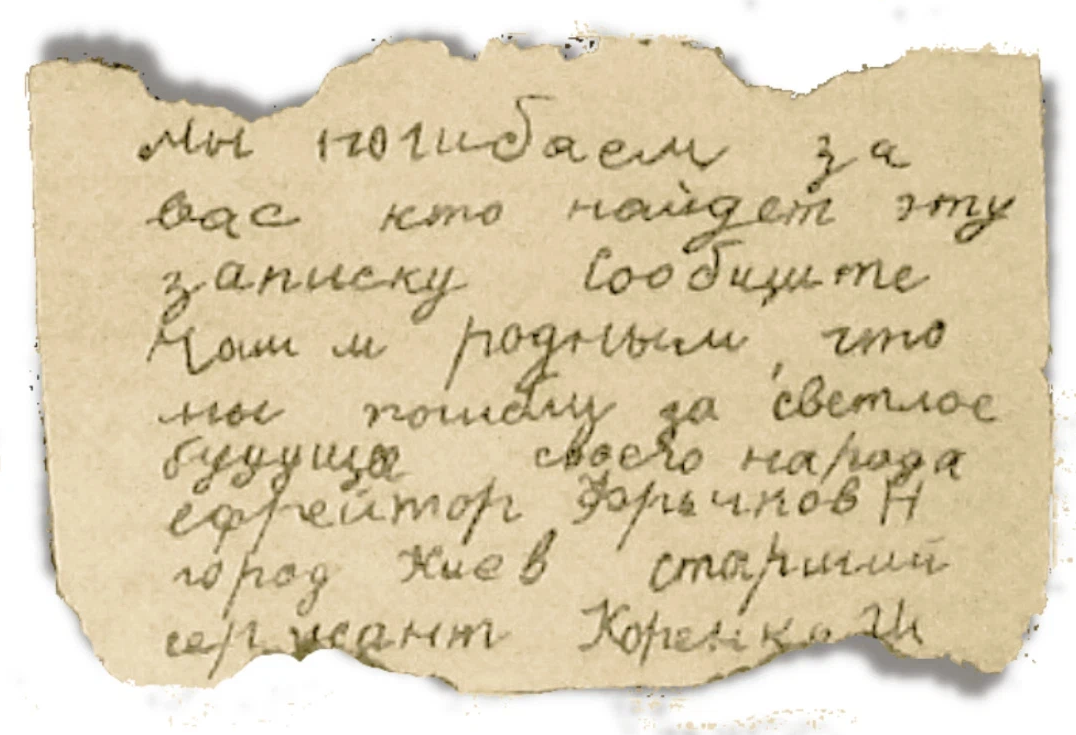 мы погибаем за
вас кто найдет эту
записку Сообщите
Нашим родным что
мы погибли за светлое
будуще своего народа
ефрейтор Юрычков Н
город Киев старший
сержант Коренко Ш